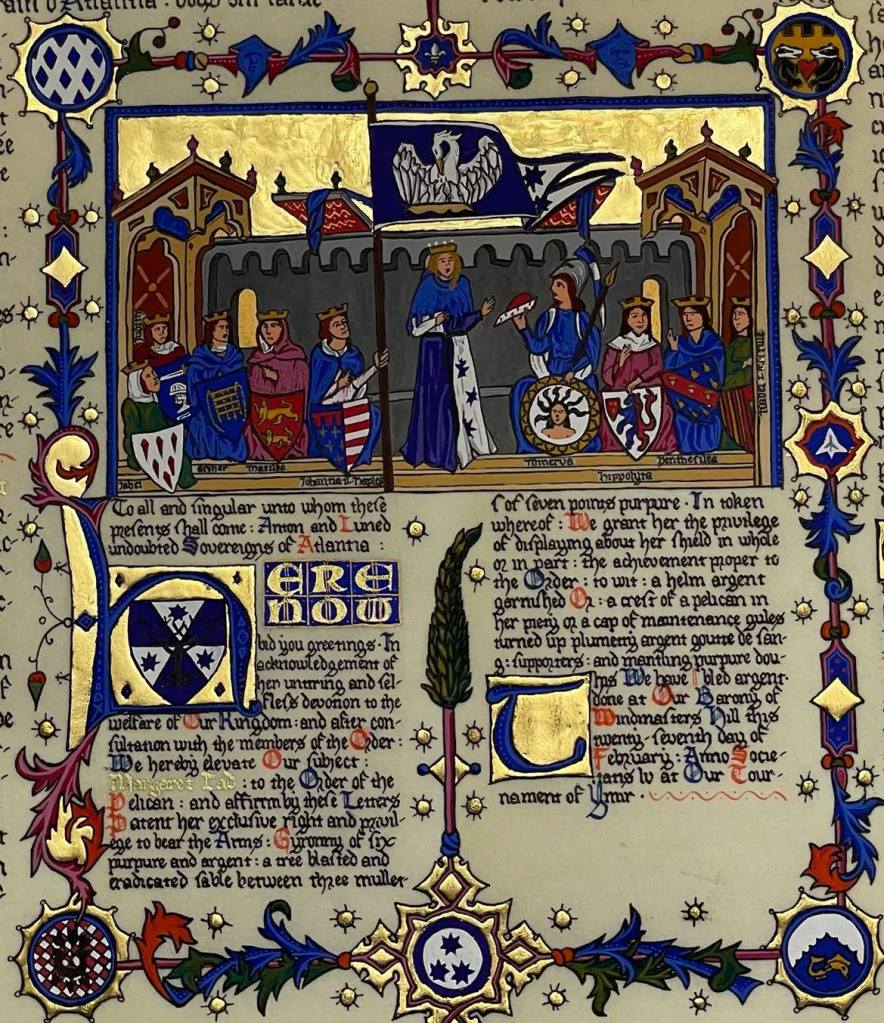 ain d'Atlantia : vous
Minerva
Hippolyta
Penthesilea
To all and singular unto whom these
presents shall come : Anton and Luned
undoubted Sovereigns of Atlantia :
HERE
NOW
bid you greetings · In
acknowledgement of
her untiring and sel-
fless devotion to the
welfare of Our Kingdom : and after con-
sultation with the members of the Order :
We hereby elevate Our subject :
Margaret Lad : to the Order of the
Pelican : and affirm by these Letters
Patent her exclusive right and privil-
ege to bear the Arms : Gyronny of six
purpure and argent : a tree blasted and
eradicated sable between three mullet-
s of seven points purpure · In token
whereof : We grant her the privilege
of displaying about her shield in whole
or in part : the achievement proper to
the Order : to wit : a helm argent
garnished Or : a crest of a pelican in
her piety or a cap of maintenance gules
turned up plumetty argent goutte de san-
g : supporters : and mantling purpure dou-
This We have bled argent·
done at Our Barony of
Windmasters Hill this
twenty-seventh day of
February : Anno Socie-
tatis lv at Our Tour-
nament of Ymir ·